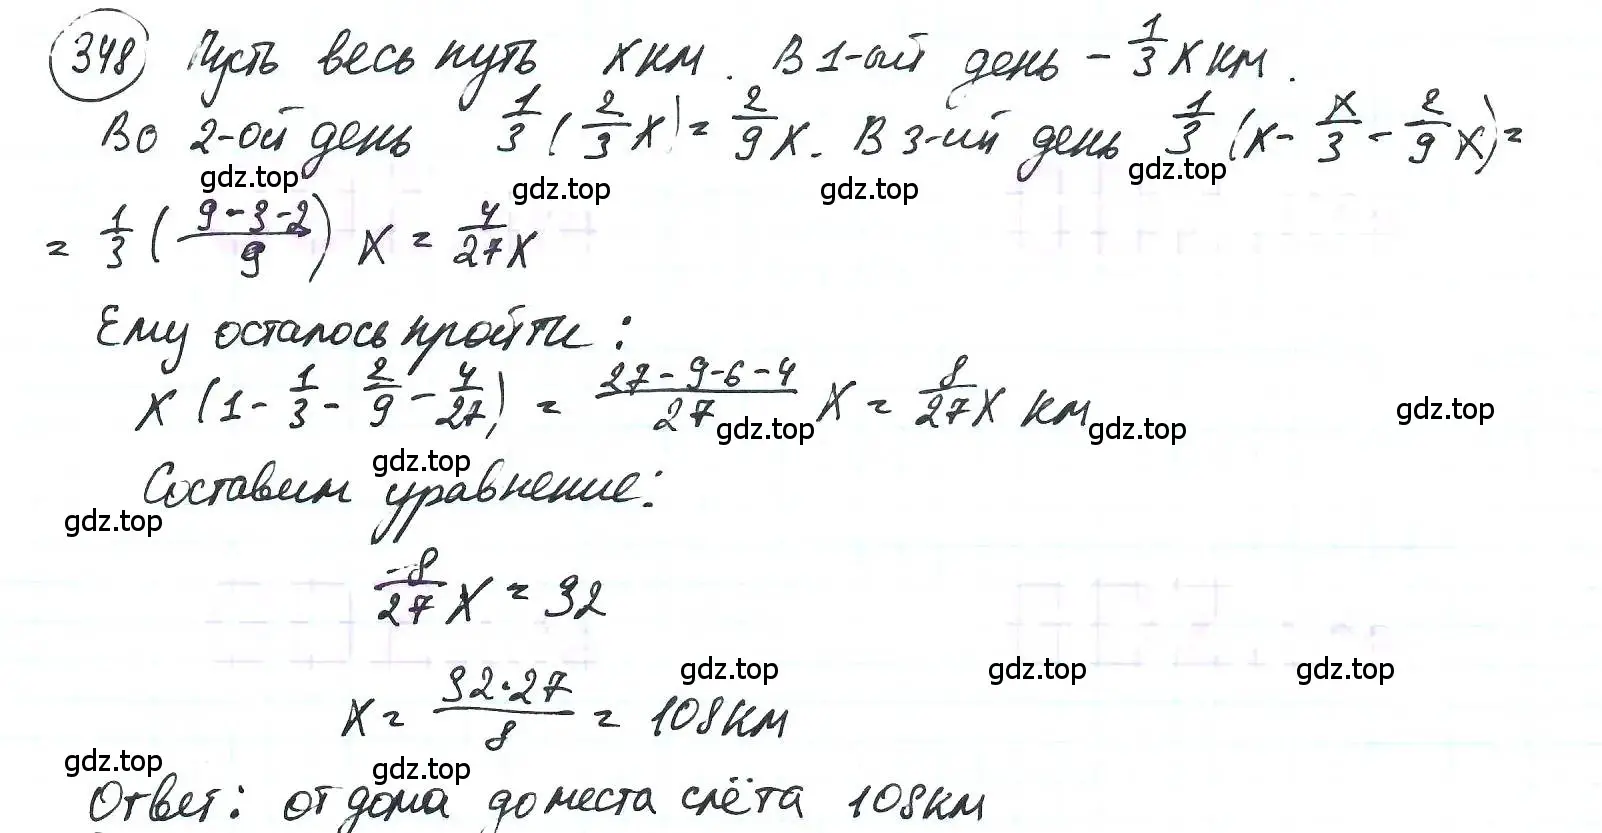 348 Пусть весь путь x км. В 1-ый день - 1/3 x км.
Во 2-ой день 1/3 (2/3 x) = 2/9 x. В 3-ий день 1/3 (x - x/3 - 2/9 x) =
gdz.top gdz.top gdz.top gdz.top
= 1/3 ((9-3-2)/9) x = 4/27 x
Ему осталось пройти:
x (1 - 1/3 - 2/9 - 4/27) = (27-9-6-4)/27 x = 8/27 x км
gdz.top gdz.top gdz.top
gdz.top
Составим уравнение:
gdz.top
8/27 x = 32
gdz.top gdz.top gdz.top
x = (32·27)/8 = 108 км
gdz.top gdz.top
Ответ: от дома до места слёта 108 км